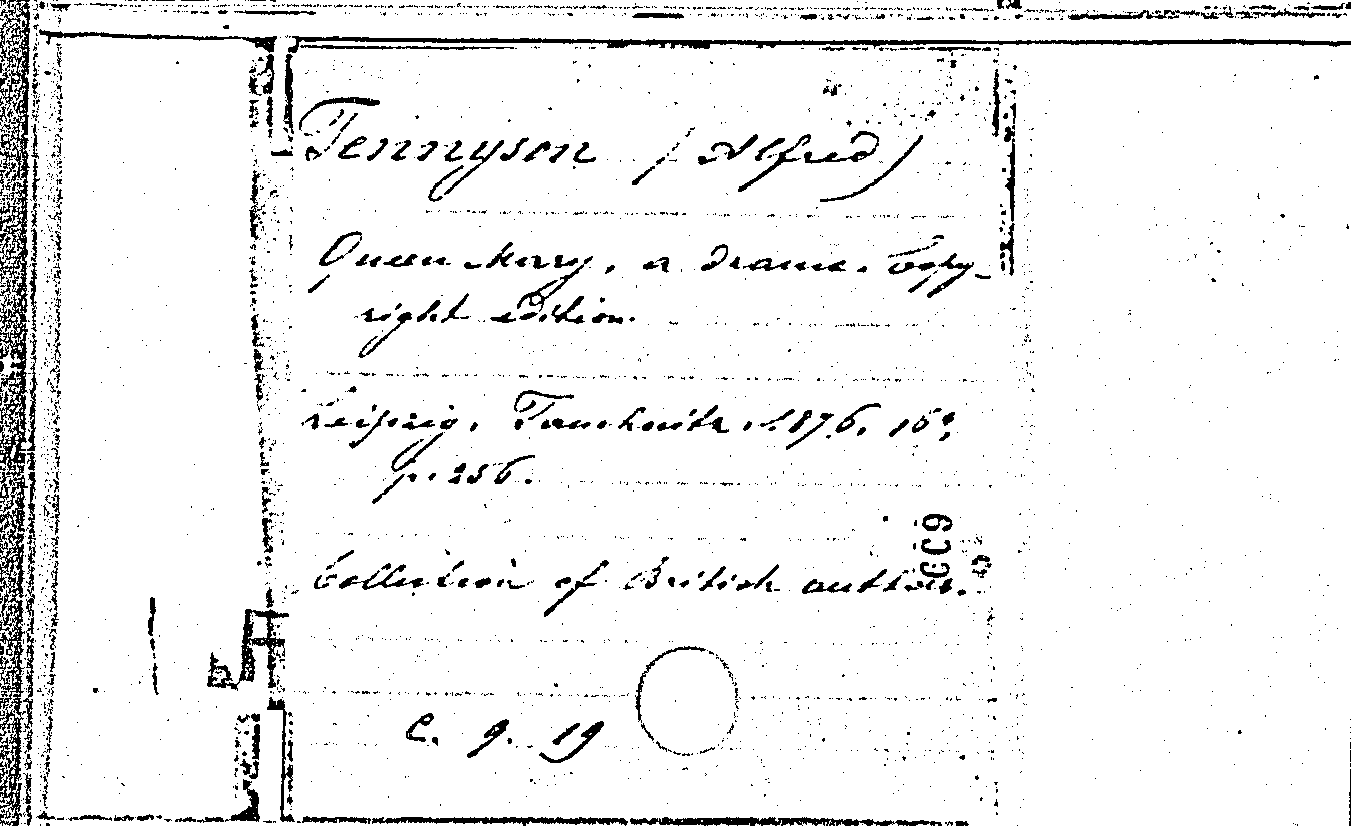 Tennyson (Alfred)
Queen Mary, a drama. Copy-
right edition.
Leipzig, Tauchnitz, 1876. 16°,
p. 256.
Collection of British authors.
C. 9. 19